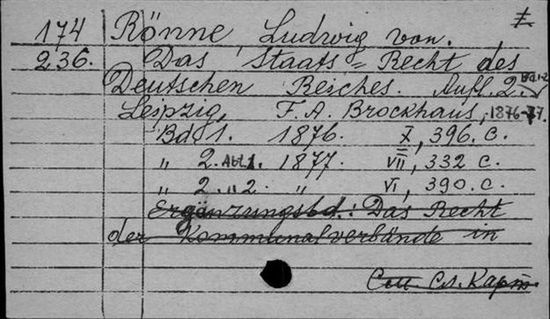 174 Rönne, Ludwig von.
236. Das Staats=Recht des
Deutschen Reiches. Aufl. 2. Bd. 1-2
Leipzig, F. A. Brockhaus, 1876-77.
Bd. 1. 1876. X, 396. c.
„ 2. Abt. 1. 1877. VII, 332 c.
„ 2. „ 2. „ VI, 390. c.
Ergänzungsbd.: Das Recht
der Kommunalverbände in
См. сл. карт.